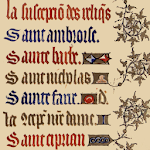 la suscepciõ des reliqs
Saint ambroise.
Sainte barbe.
Saint nicholas
Sainte fare. d.
la ꝯcepc̃ nr̃e dame.
Saint ciprian